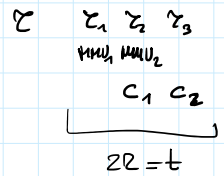 τ τ₁ τ₂ τ₃
MMU₁ MMU₂
C₁ C₂
2R = t